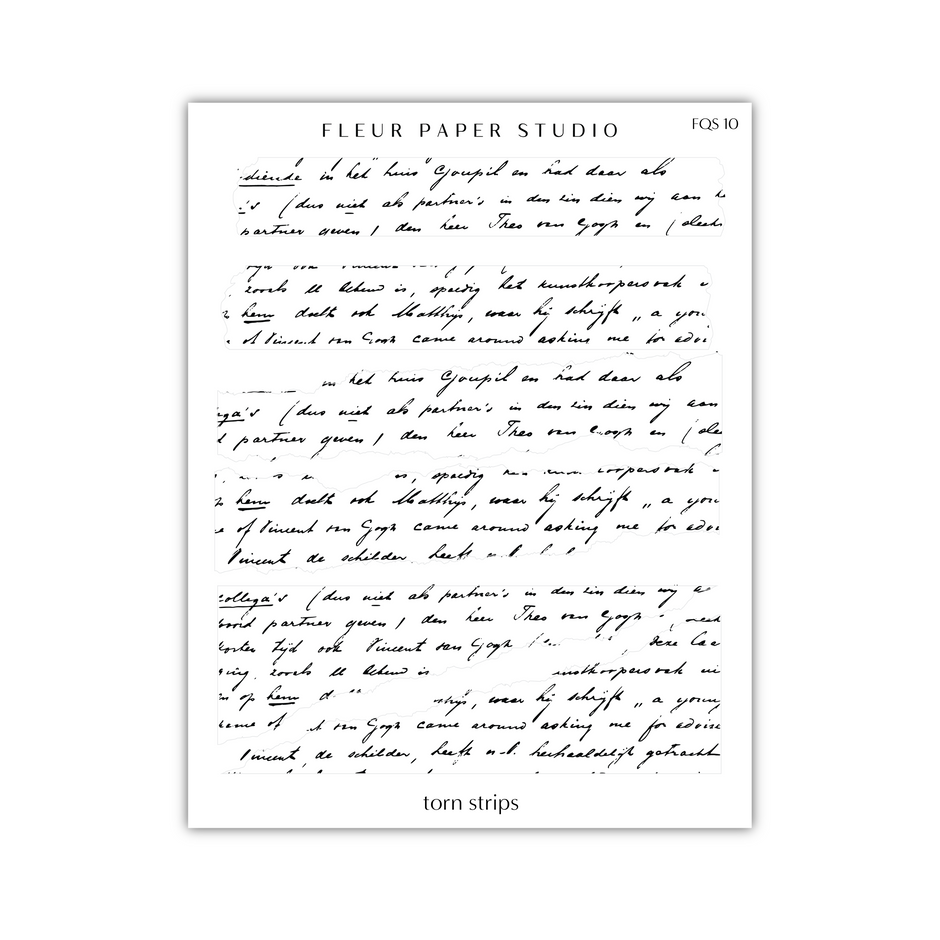 FLEUR PAPER STUDIO
FQS 10
diende in het huis Goupil en had daar als
's (dus niet als partner's in den zin dien wij aan
partner geven) den heer Theo van Gogh en (slech
zooals U bekend is, spoedig het kunstkoopersvak
hem doelt ook Matthijs, waar hij schrijft „ a you
of Vincent van Gogh came around asking me for advi
in het huis Goupil en had daar als
ega's (dus niet als partner's in den zin dien wij aan
partner geven) den heer Theo van Gogh en (slec
is, spoedig koopersvak
hem doelt ook Matthijs, waar hij schrijft „ a you
of Vincent van Gogh came around asking me for advi
Vincent de schilder heeft
collega's (dus niet als partner's in den zin dien wij
woord partner geven) den heer Theo van Gogh
korten tijd ook Vincent van Gogh deze
ging, zooals U bekend is unstkoopersvak
op hem waar hij schrijft „ a young
name of van Gogh came around asking me for advise
Vincent, de schilder, heeft herhaaldelijk getracht
torn strips